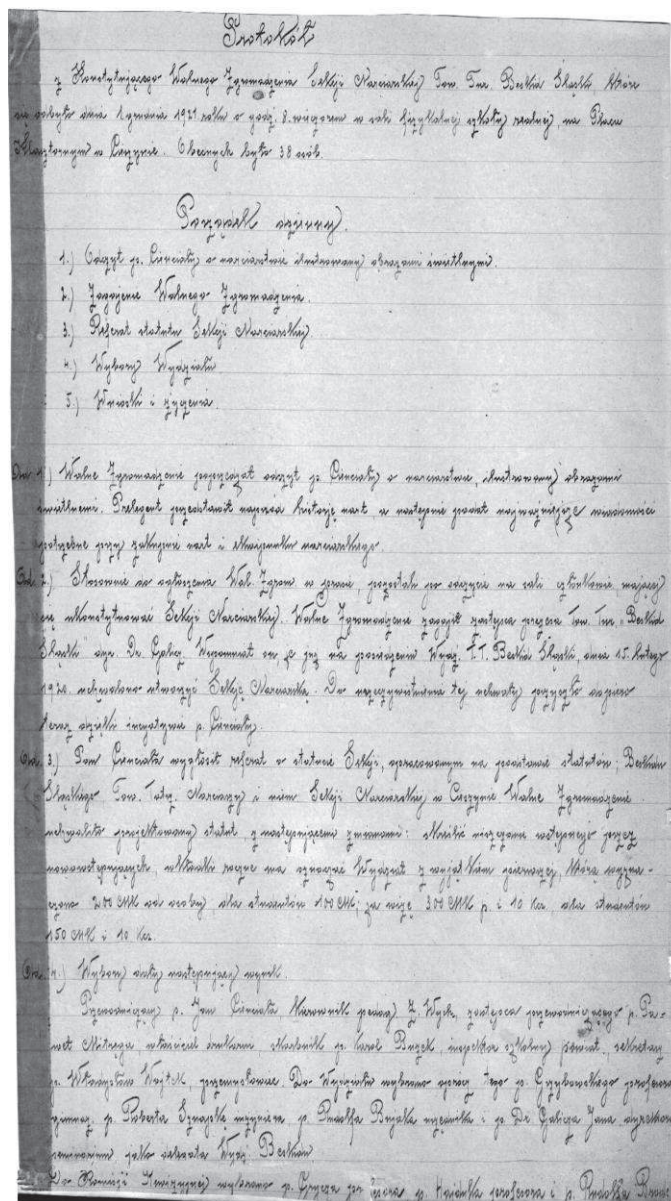 Protokół
z Konstytującego Walnego Zgromadzenia Sekcji Narciarskiej Tow. Tur. Beskid Śląski, które
się odbyło dnia 1 grudnia 1921 roku o godz. 8. wieczorem w sali fizykalnej szkoły realnej, na Placu
Klasztornym w Cieszynie. Obecnych było 38 osób.
Porządek dzienny.
1.) Odczyt p. Cienciały o narciarstwie ilustrowany obrazami świetlnymi.
2.) Zagajenie Walnego Zgromadzenia.
3.) Referat statutu Sekcji Narciarskiej
4.) Wybory Wydziału
5.) Wnioski i życzenia.
1.) Walne Zgromadzenie poprzedził odczyt p. Cienciały o narciarstwie, ilustrowany obrazami
świetlnemi. Prelegent przedstawił najprzód historję nart, a następnie podał najważniejsze wiadomości
potrzebne przy zakupnie nart i ekwipunku narciarskiego.
2.) Stosownie do ogłoszenia Wal. Zgrom. w prasie, pozostali po odczycie na sali członkowie mający
się ukonstytuować Sekcji Narciarskiej. Walne Zgromadzenie zagaił zastępca prezesa Tow. Tur. "Beskid
Śląski" dyr. Dr. Galicz. Wspomniał on, że już na posiedzeniu Wydz. T.T. Beskid Śląski, dnia 15. lutego
1920. uchwalono utworzyć Sekcję Narciarską. Do urzeczywistnienia tej uchwały przyszło dopiero
teraz dzięki inicjatywie p. Cienciały.
3.) Pan Cienciała wygłosił referat o statucie Sekcji, opracowanym na podstawie statutów: Beskidu
Śląskiego, Tow. Tatrz. Narciarzy i niem. Sekcji Narciarskiej w Cieszynie. Walne Zgromadzenie
uchwaliło projektowany statut z następującemi zmianami: skreślić wstępnego przez
nowowstępujących, wkładki roczne ma oznaczać Wydział z wyjątkiem pierwszej, którą wyzna-
czono 200 MK od osoby, dla studentów 100 MK; za 300 MK p. i 10 Kcz. dla studentów
150 MK i 10 Kcz.
4.) Wybory dały następujący wynik
Przewodniczący p. Jan Cienciała kierownik, zastępca przewodniczącego p. Pa-
weł Mitręga właściciel drukarni, skarbnik p. Karol Buzek, inspektor szkolny powiat., sekretarz
p. Władysław Wójtek, przemysłowiec. Do Wydziału wybrano oprócz tego p. Grzybowskiego profesora
gimnaz., p. Roberta inżyniera, p. Rudolfa Bujaka urzędnika i p. Dr. Galicza Jana dyrektora
seminarium jako delegata Wydz. Beskidu
Do Komisji Rewizyjnej wybrano p. profesora i p.